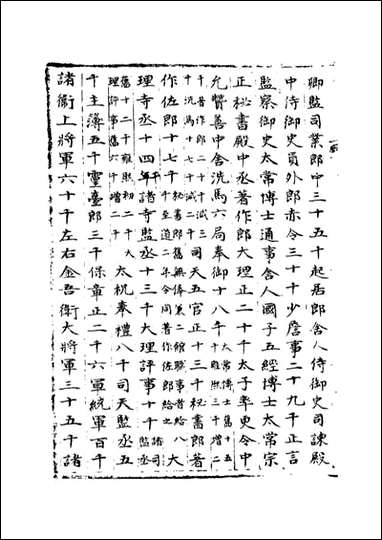 卿監司業郎中三十五千起居郎舍人侍御史司諫殿
中侍御史員外郎赤令三十千少詹事二十九千正言
監察御史太常博士通事舍人國子五經博士太常宗
正秘書殿中丞著作郎大理正二十千太子率更令中
允贊善中舍洗馬六局奉御十八千
千著作郎二十千減三
千洗馬十七千減二千
司天五官正十三千秘書郎著
作佐郎十七千
大
理寺丞十四千諸寺監丞十三千大理評事十千
太祝奉禮八千司天監丞五
千主簿五千靈臺郎三千保章正二千六軍統軍百千
諸衛上將軍六十千左右金吾衛大將軍三十五千諸